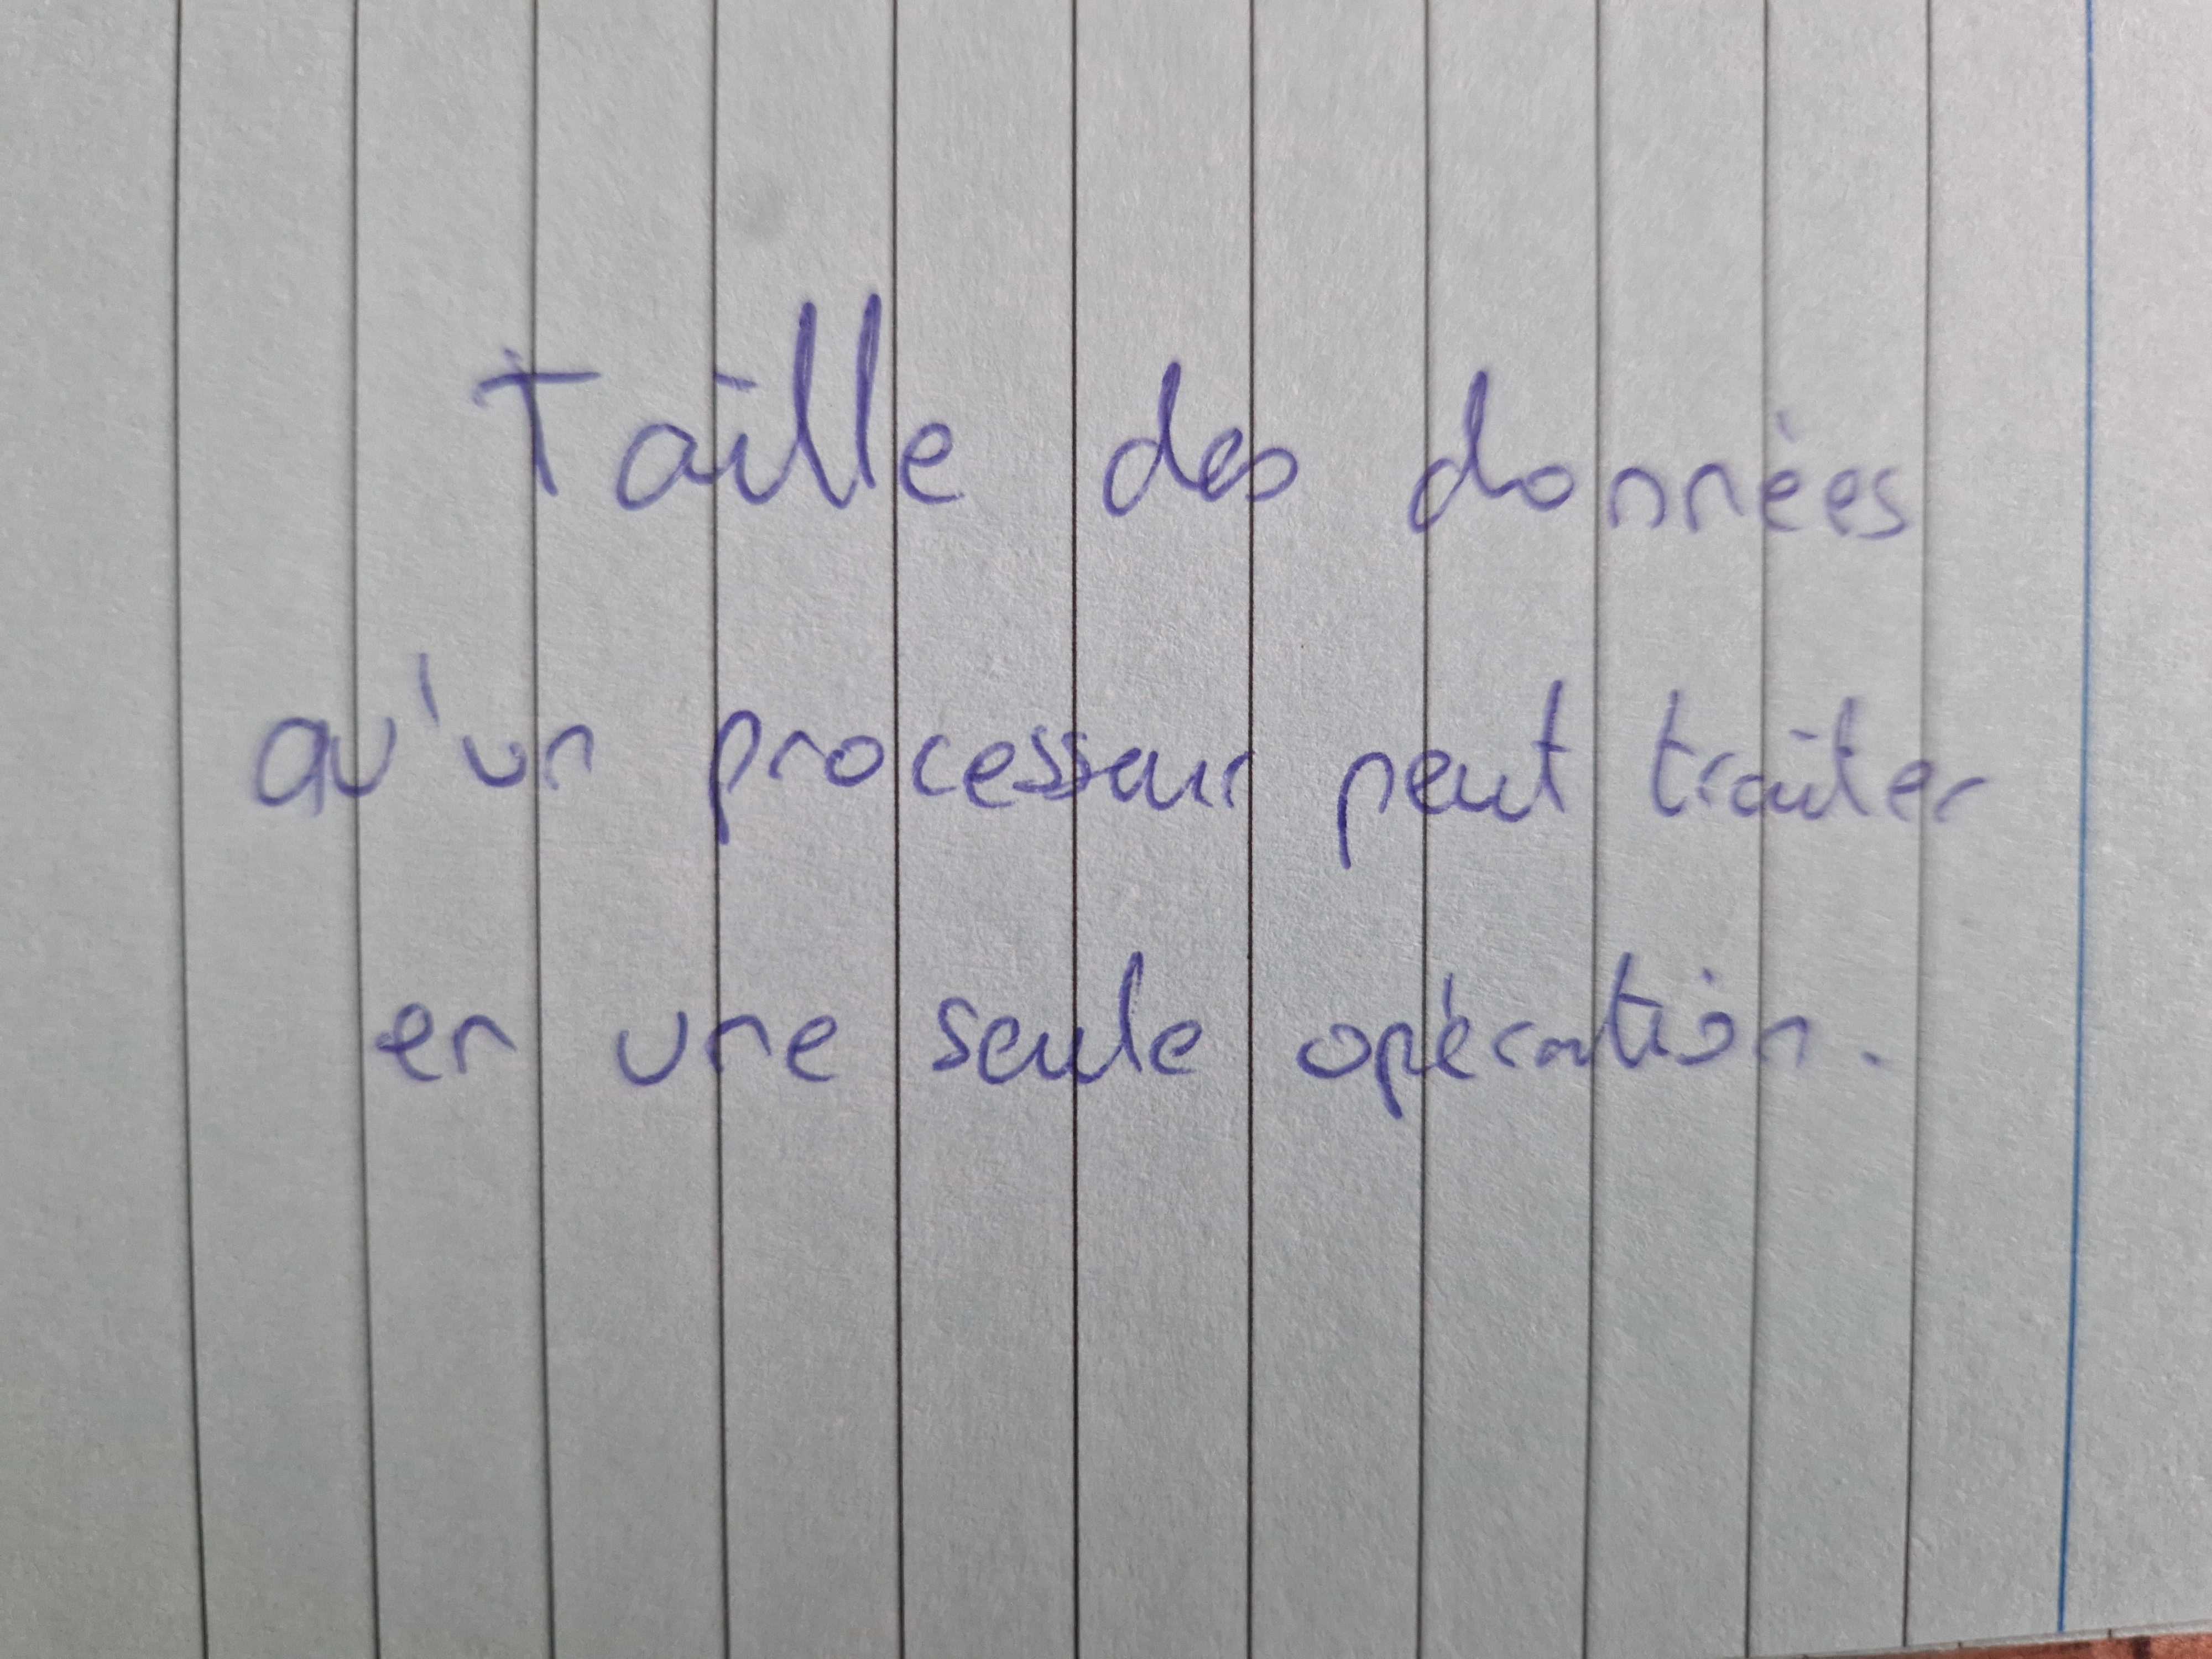 Taille des données
qu'un processeur peut traiter
en une seule opération.